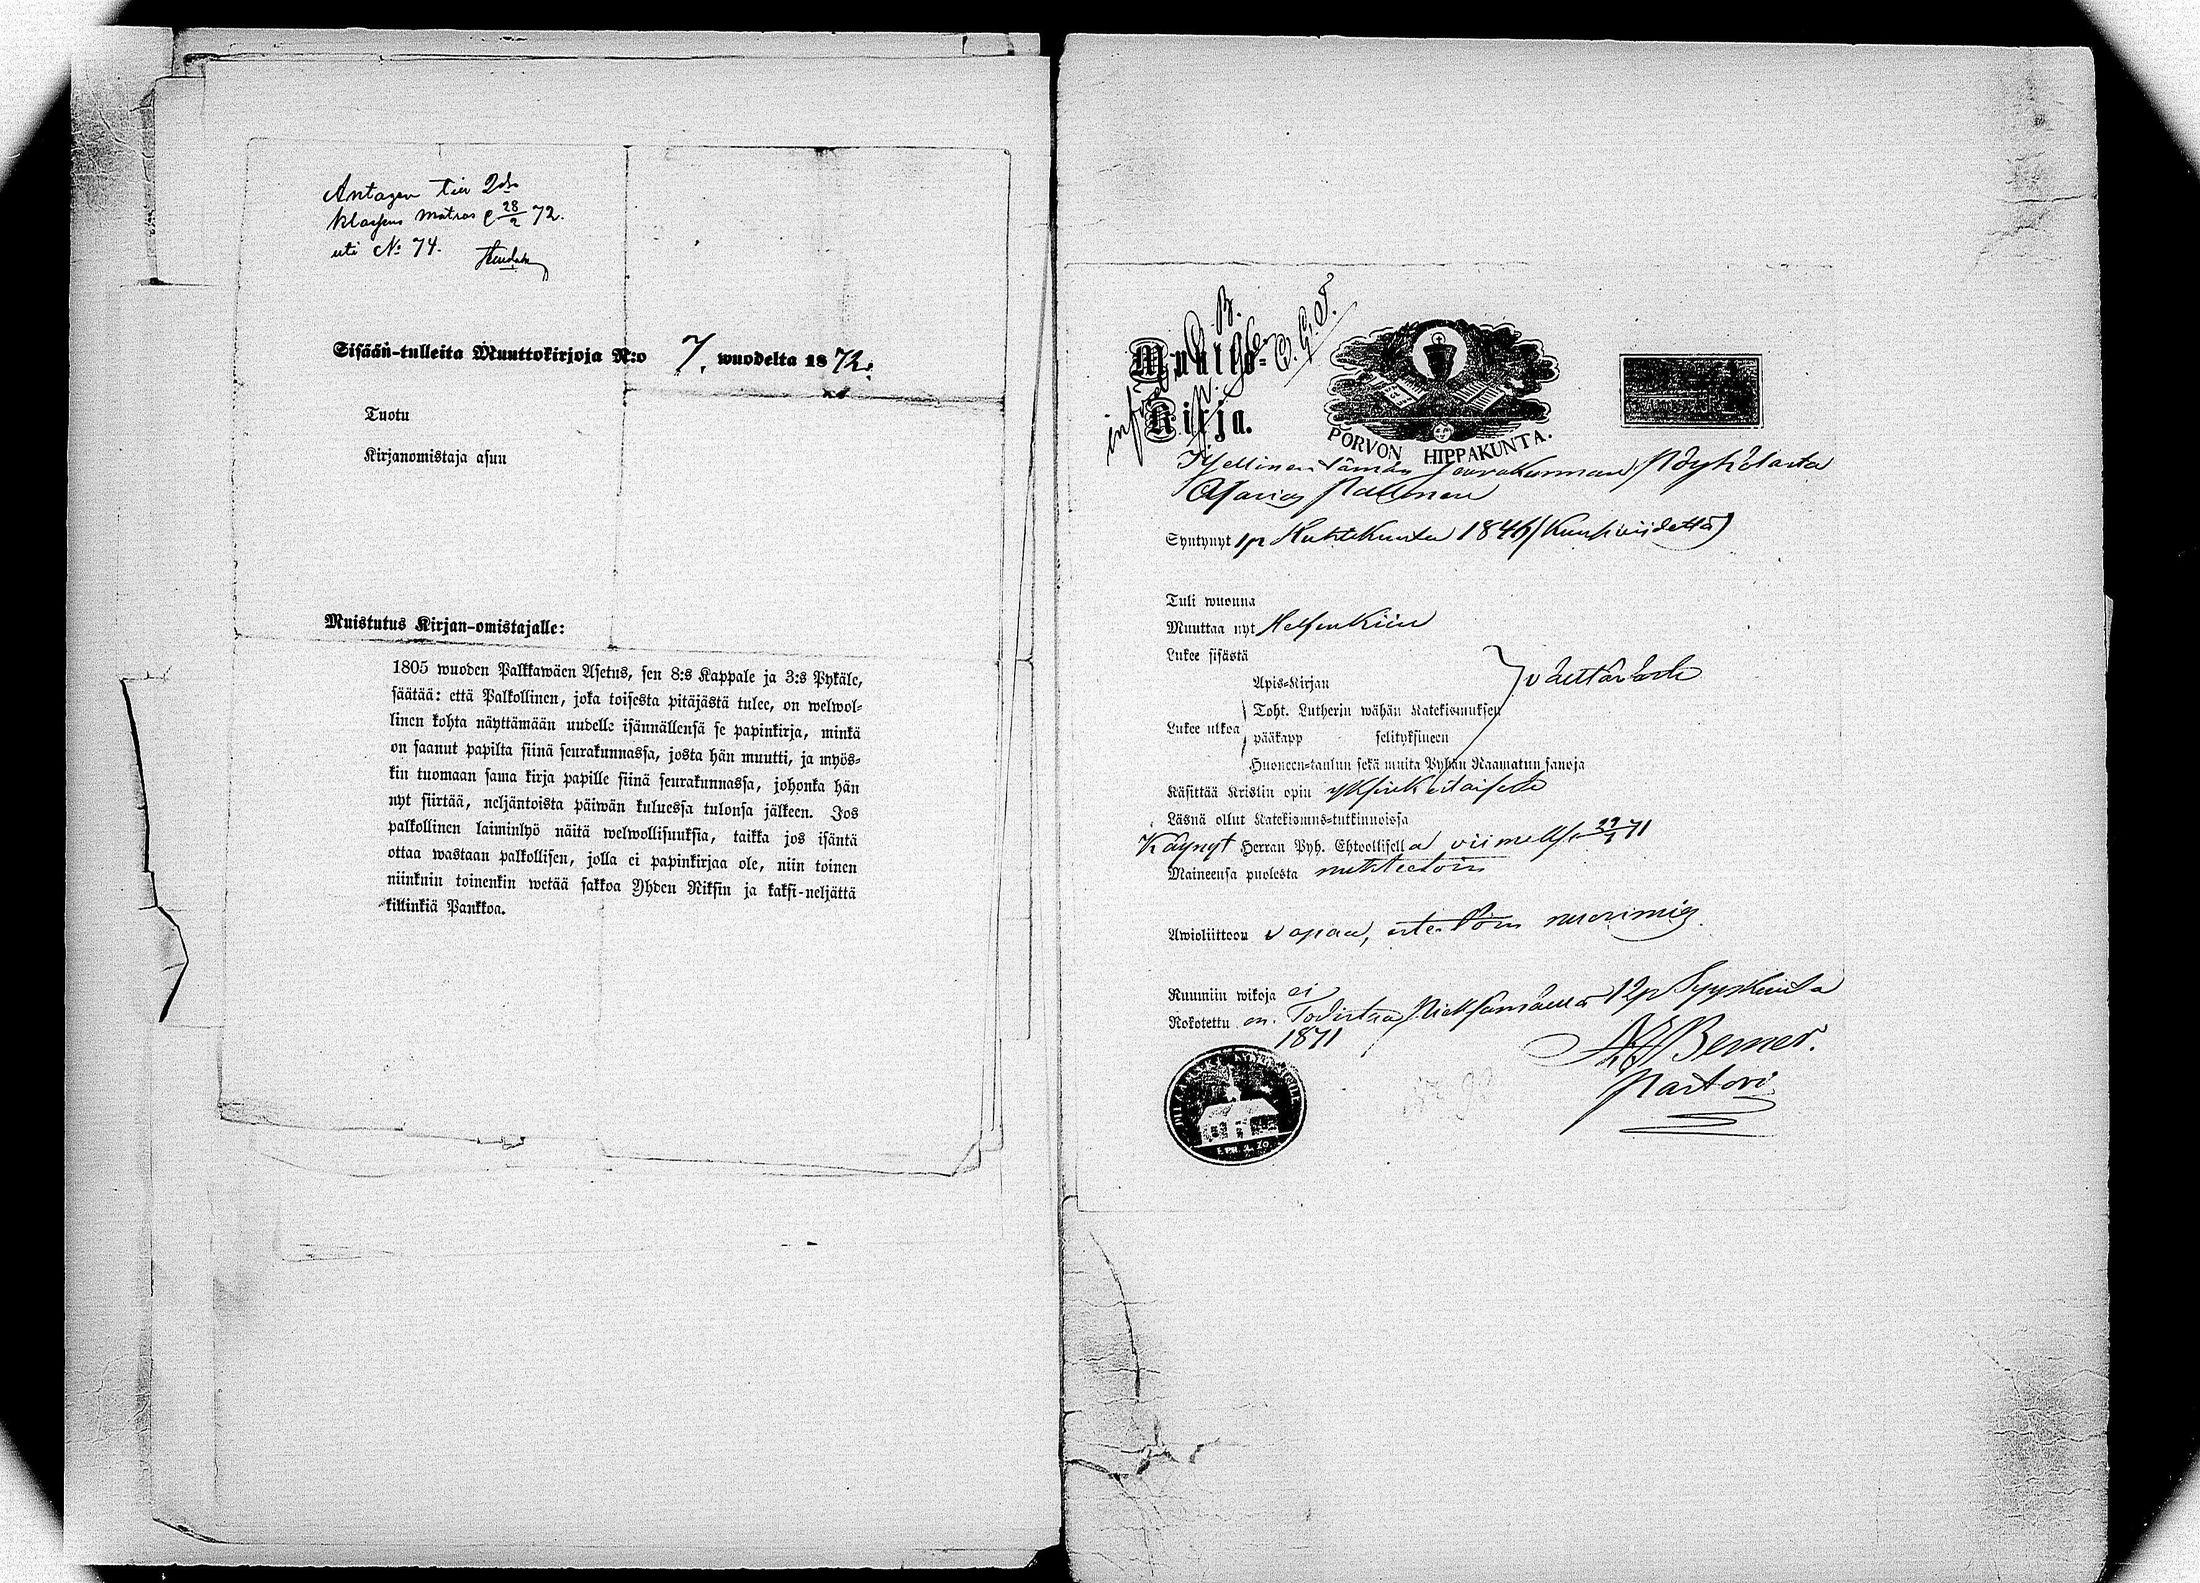 Antagen till 2dra
klassens matros d 28/2 72.
uti No 74.
Sisään-tulleita Muuttokirjoja N:o 7. wuodelta 1872.
Tuotu
Kirjanomistaja asuu
Muistutus Kirjan-omistajalle:
1805 wuoden Palkkawäen Asetus, sen 8:s Kappale ja 3:s Pykäle,
säätää: että Palkollinen, joka toisesta pitäjästä tulee, on welwol-
linen kohta näyttämään uudelle isännällensä se papinkirja, minkä
on saanut papilta siinä seurakunnassa, josta hän muutti, ja myös-
kin tuomaan sama kirja papille siinä seurakunnassa, johonka hän
nyt siirtää, neljäntoista päiwän kuluessa tulonsa jälkeen. Jos
palkollinen laiminlyö näitä welwollisuuksia, taikka jos isäntä
ottaa wastaan palkollisen, jolla ei papinkirjaa ole, niin toinen
niinkuin toinenkin wetää sakkoa Yhden Riksin ja kaksi-neljättä
killinkiä Pankkoa.
Muutto-
Kirja.
PORVON HIPPAKUNTA.
Itsellinen tämän seurakunnan Pöyhölästä
Asarias Pallonen
Syntynyt 1p Huhtikuuta 1846 (Kuusiviidettä)
Tuli wuonna
Muuttaa nyt Helsinkiin
Lukee sisästä
Apis-Kirjan
Toht. Lutherin wähän Katekismuksen
Lukee ulkoa
pääkapp selityksineen
välttävästi
Huoneen-taulun sekä muita Pyhän Raamatun sanoja
Käsittää Kristin opin yksinkertaisesti
Läsnä ollut Katekismus-tutkinnoissa
Käynyt Herran Pyh. Ehtoollisella viimeksi 71
Maineensa puolesta nuhteetoin
Awioliittoon vapaa, esteetöin nuorimies
Ruumiin wikoja ei
Rokotettu on. Todistaa Pieksämäellä 12p Syyskuuta
1871
Bemer.
Pastori